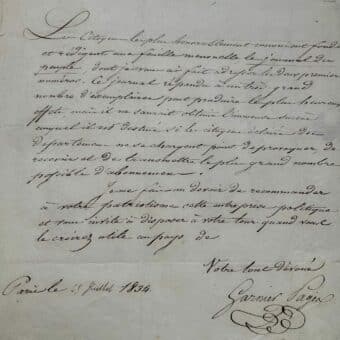 Les Citoyens les plus honorablement connus ont fondé
et rédigent une feuille mensuelle le journal du
peuple, dont j'ai fait les deux premiers
numéros. Ce journal répandu à un très grand
nombre d'exemplaires peut produire le plus heureux
effet mais il ne saurait obtenir l'immense succès
auquel il est destiné si les citoyens des
départemens ne se chargent pour de
recevoir et de transmettre le plus grand nombre
possible d'abonnemens.
Je me fais un devoir de recommander
à votre patriotisme cette entreprise politique
et vous invite à disposer à votre tour quand vous
le croirez utile au pays de
Votre tout dévoué
Paris le 15 Juillet 1834
Garnier Pagès